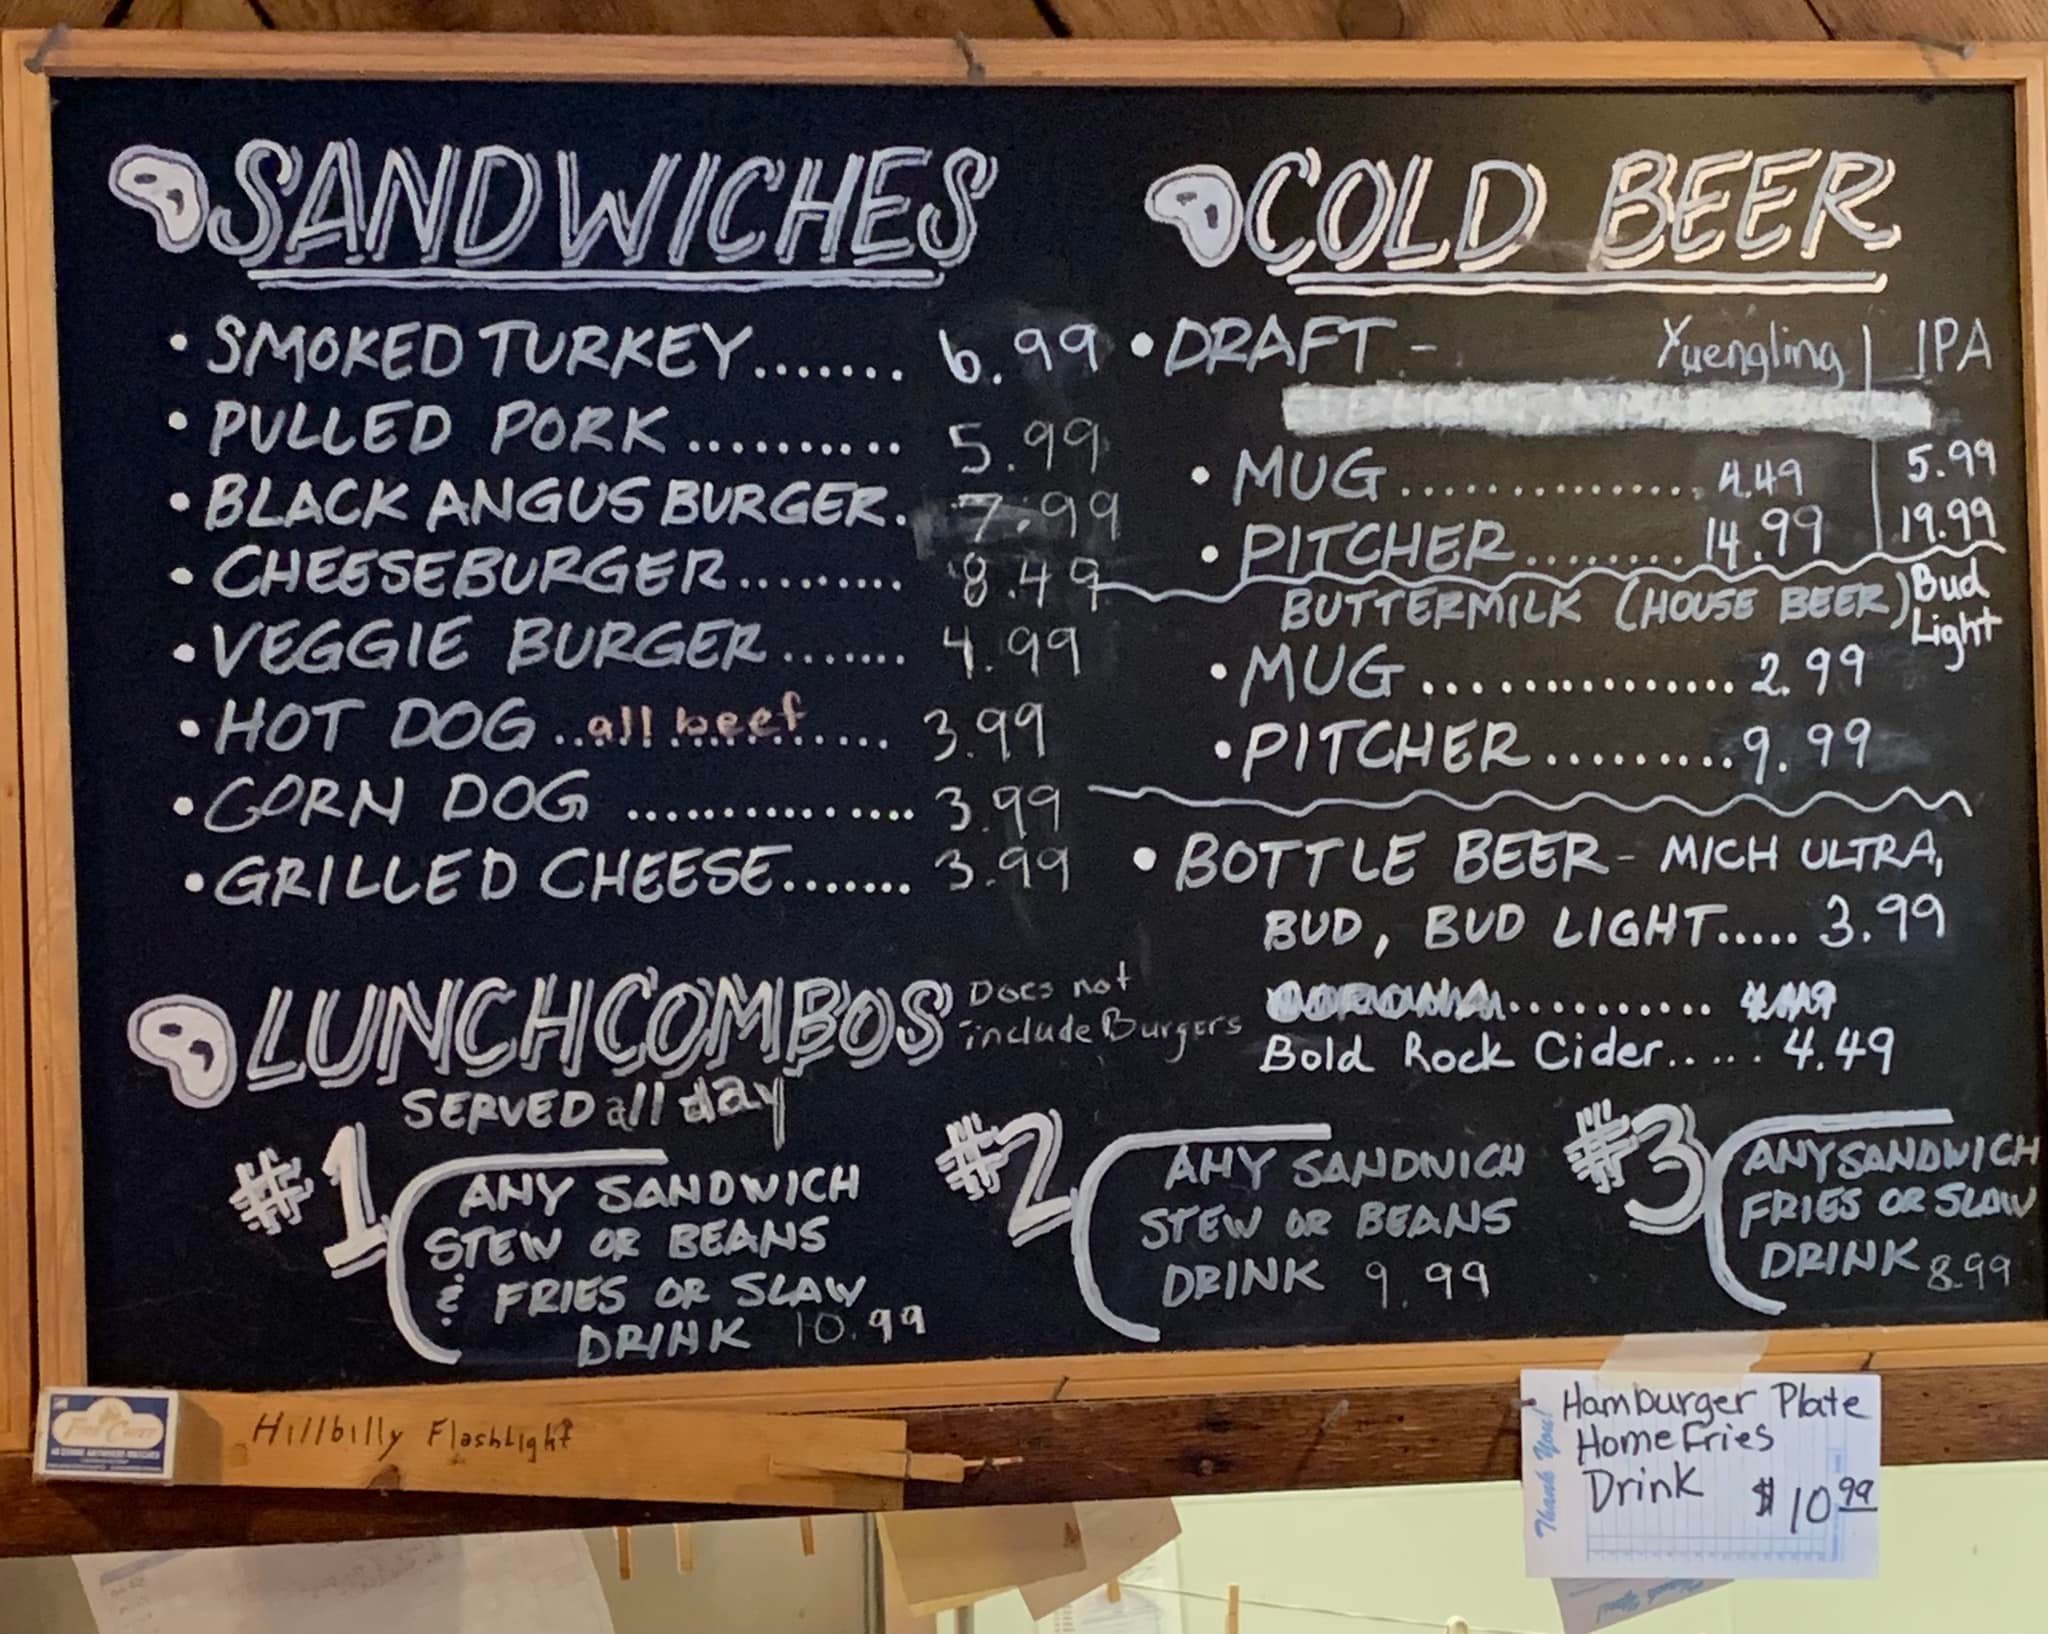 SANDWICHES
• SMOKED TURKEY....... 6.99
• PULLED PORK.......... 5.99
• BLACK ANGUS BURGER. 7.99
• CHEESEBURGER......... 8.49
• VEGGIE BURGER....... 4.99
• HOT DOG ..all beef..... 3.99
• CORN DOG .............. 3.99
• GRILLED CHEESE....... 3.99
COLD BEER
• DRAFT - Yuengling | IPA
• MUG............... 4.49 | 5.99
• PITCHER........ 14.99 | 19.99
BUTTERMILK (HOUSE BEER) Bud
Light
• MUG............... 2.99
• PITCHER......... 9.99
• BOTTLE BEER - MICH ULTRA,
BUD, BUD LIGHT..... 3.99
Bold Rock Cider..... 4.49
LUNCH COMBOS Does not
include Burgers
SERVED all day
#1 ANY SANDWICH
STEW OR BEANS
& FRIES OR SLAW
DRINK 10.99
#2 ANY SANDWICH
STEW OR BEANS
DRINK 9.99
#3 ANY SANDWICH
FRIES OR SLAW
DRINK 8.99
Hillbilly Flashlight
Thank You!
Hamburger Plate
Home Fries
Drink $10.99